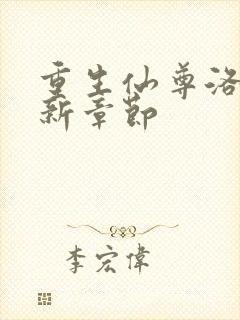 重生仙尊洛
新章节
李宏偉